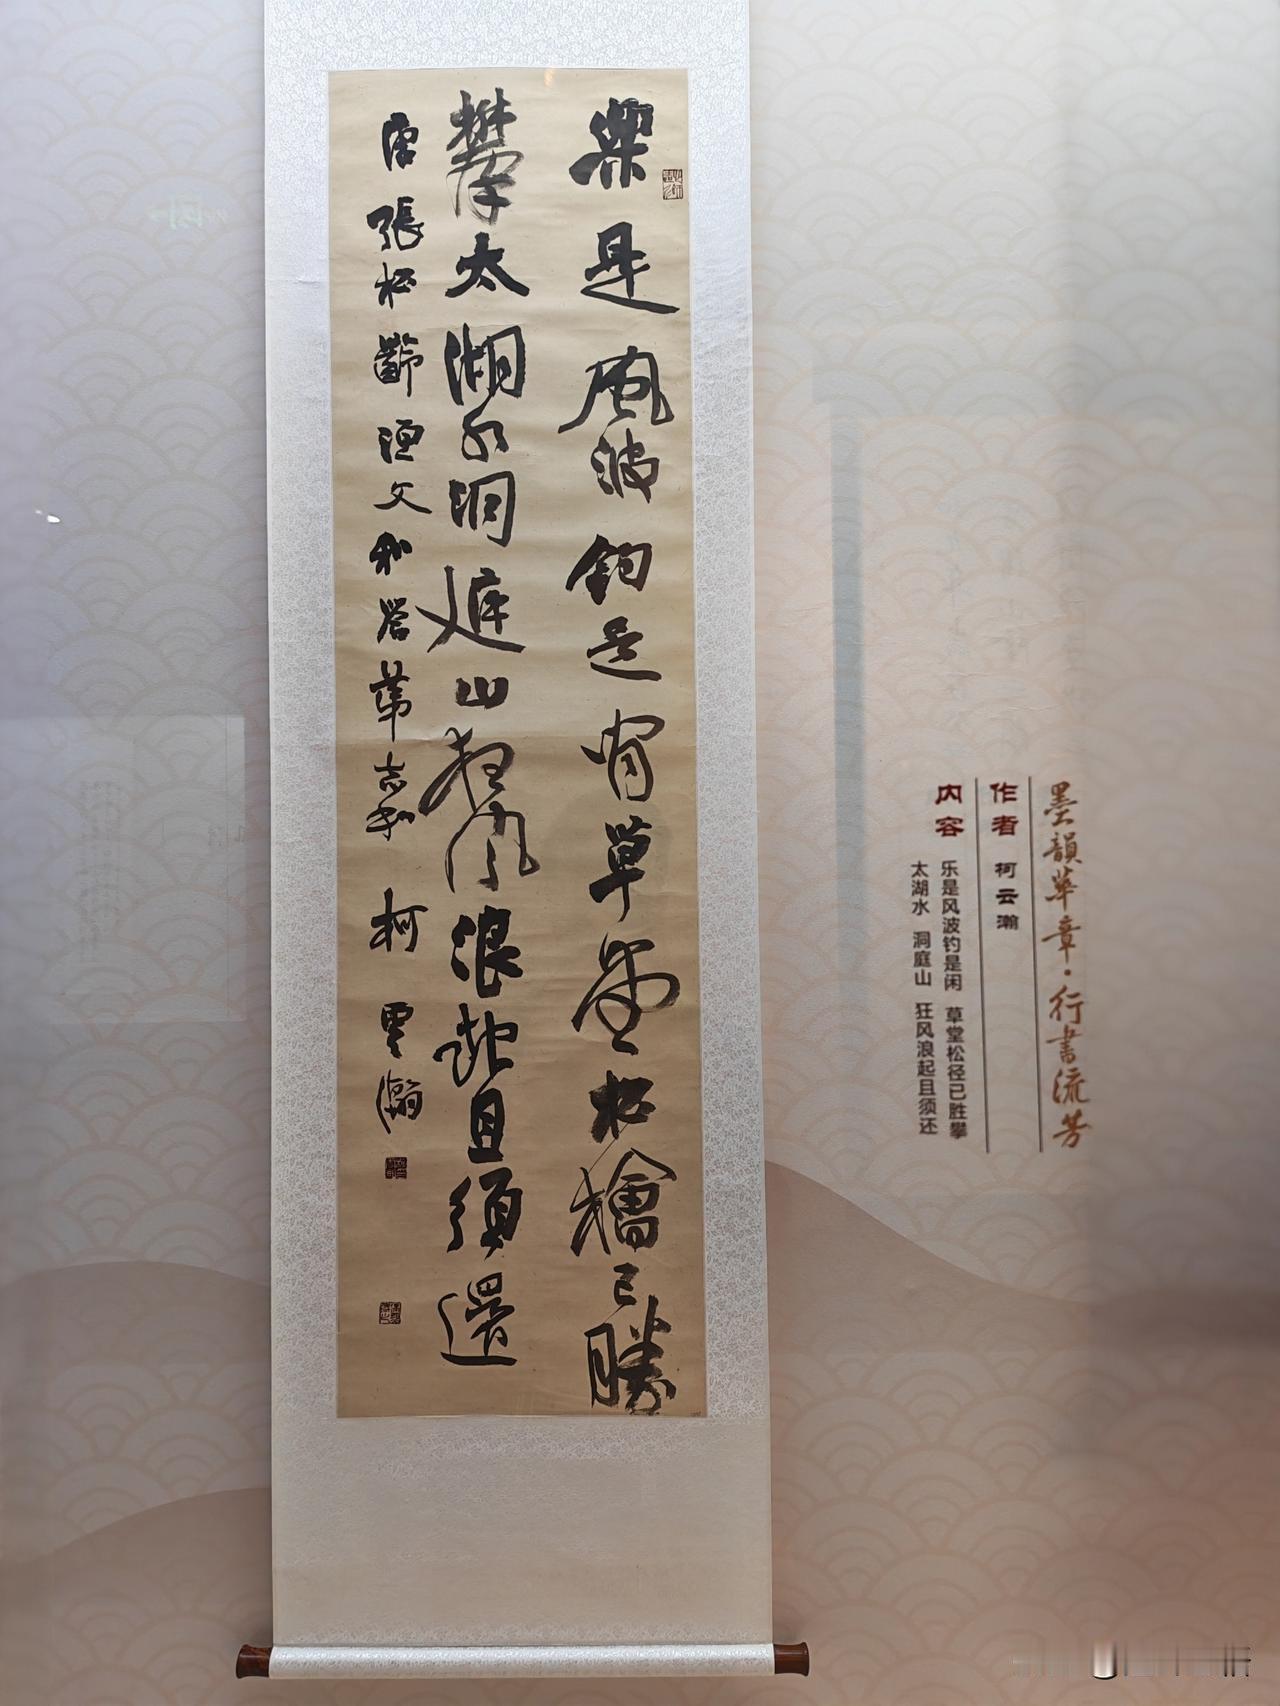 樂是風波釣是閒草堂松檜已勝
攀太湖水洞庭山狂風浪起且須還
唐張松齡漁父和答第志和 柯雲瀚
墨韻華章·行書流芳
作者 柯云瀚
内容 乐是风波钓是闲 草堂松径已胜攀
太湖水 洞庭山 狂风浪起且须还